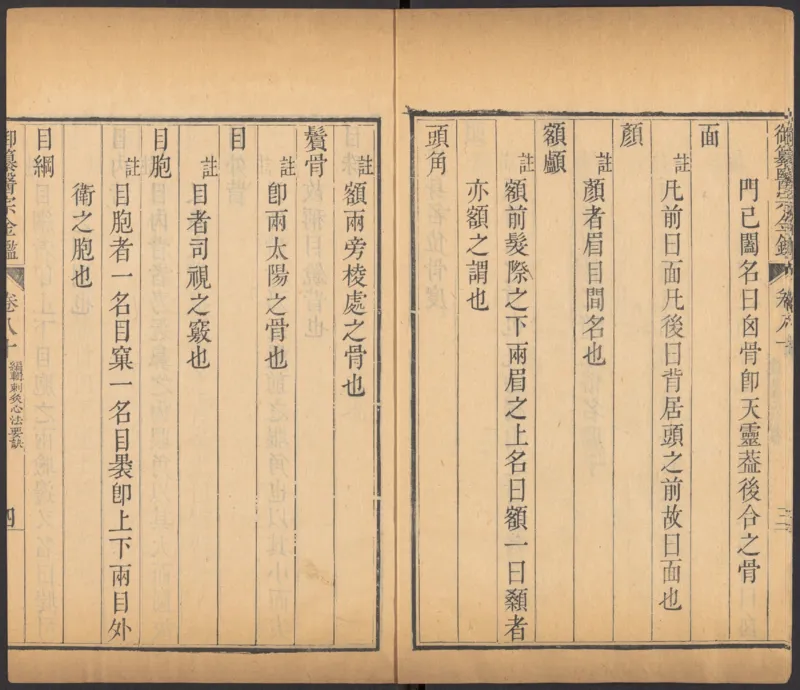 御纂醫宗金鑑
門已闔名曰囟骨卽天靈葢後合之骨
面
註
凡前曰面凡後曰背居頭之前故曰面也
顏
註
顏者眉目間名也
額顱
註
額前髮際之下兩眉之上名曰額一曰顙者
亦額之謂也
頭角
註
額兩旁棱處之骨也
鬢骨
註
卽兩太陽之骨也
目
註
目者司視之竅也
目胞
註
目胞者一名目窠一名目裹卽上下兩目外
衛之胞也
目綱
御纂醫宗金鑑
卷八十
編輯刺灸心法要訣
四